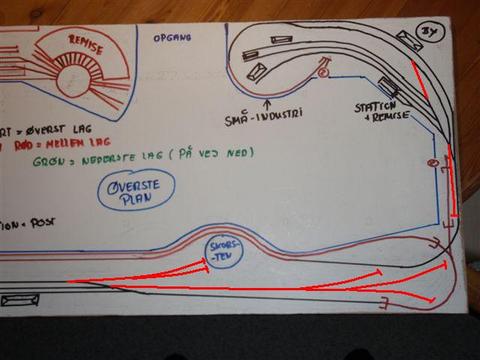 REMISE
OPGANG
BY
SMÅ-INDUSTRI
STATION
+ REMISE
RT = ØVERST LAG
RØD = MELLEM LAG
GRØN = NEDERSTE LAG (PÅ VEJ NED)
ØVERSTE
PLAN
TION + POST
SKORS-
-TEN